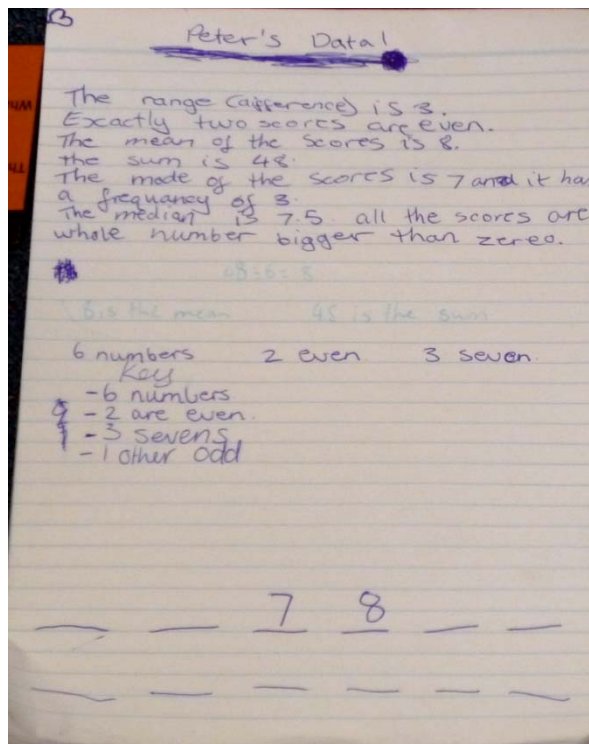 B
Peter's Data!
The range (difference) is 3.
Exactly two scores are even.
The mean of the scores is 8.
the sum is 48.
The mode of the scores is 7 and it ha
a frequancy of 3.
The median is 7.5. all the scores are
whole number bigger than zereo.
48÷6=8
8 is the mean 48 is the sum
6 numbers 2 even 3 seven.
Key
-6 numbers
-2 are even.
-3 sevens
-1 other odd
7 8